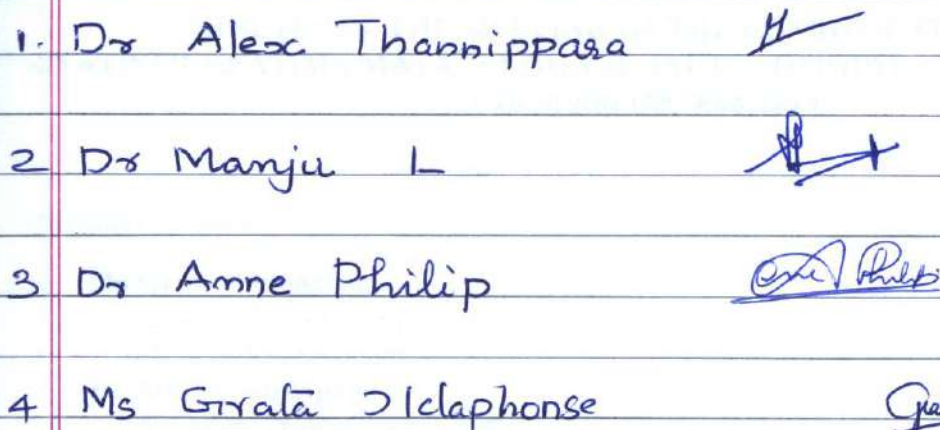 1. Dr Alex Thannippara
2 Dr Manju L
3 Dr Anne Philip Philip
4 Ms Grata Ildaphonse